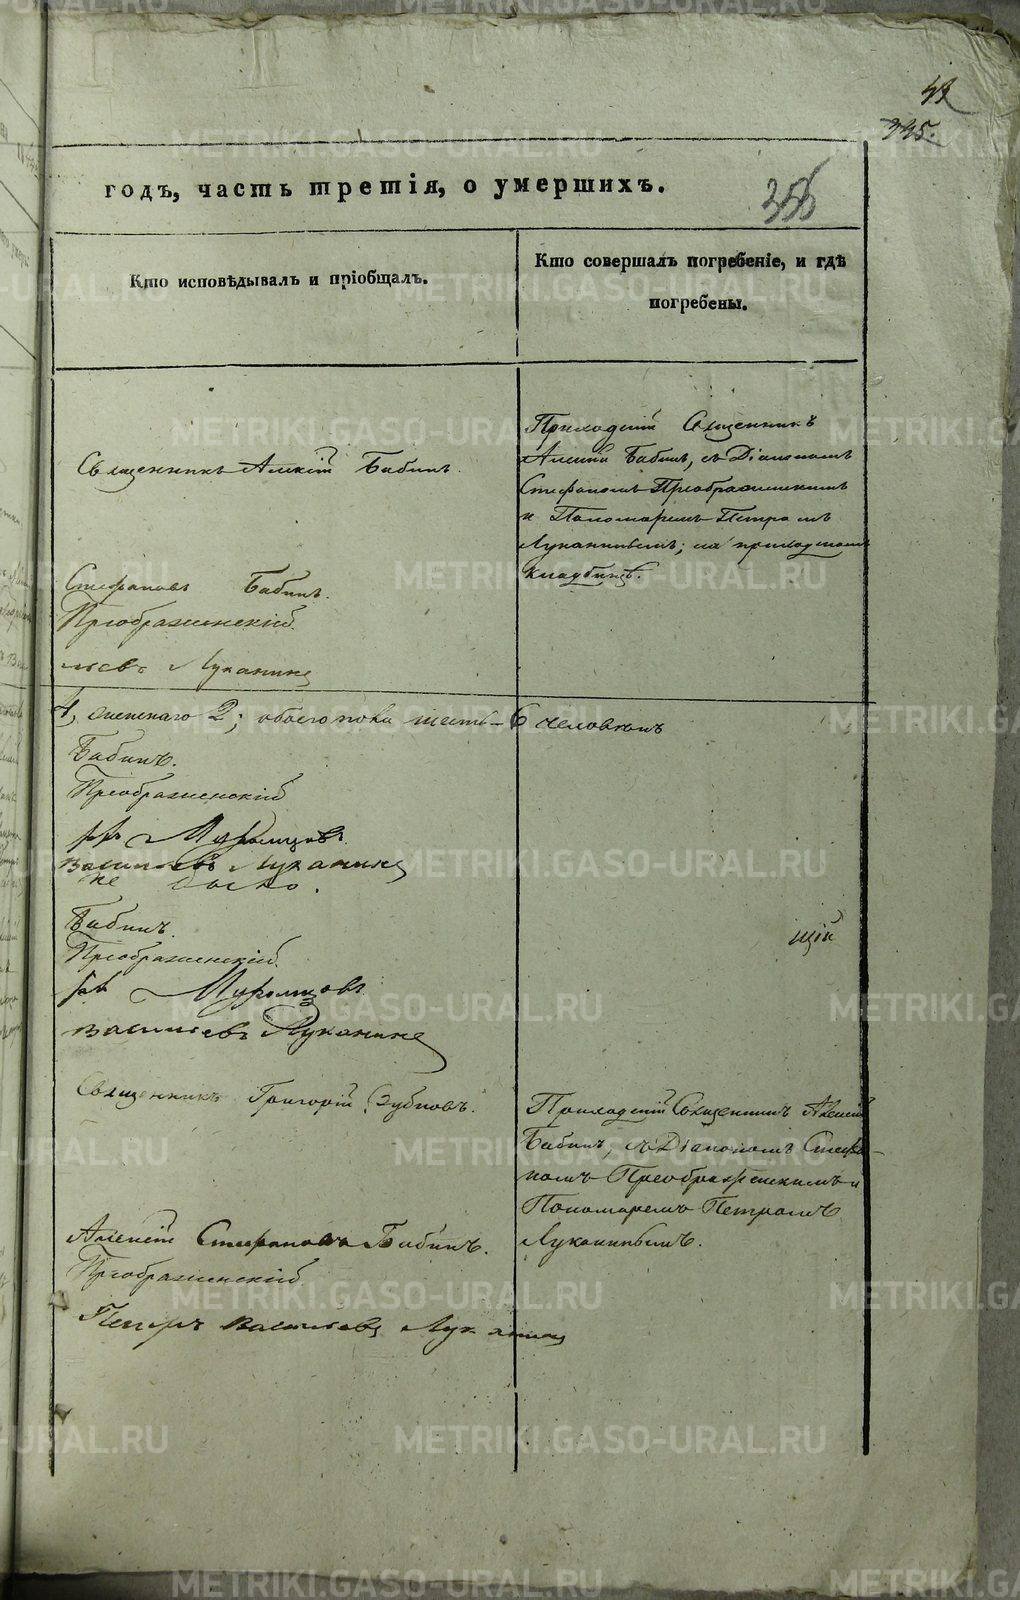 42
335.
годъ, часть третія, о умершихъ.
356
Кто исповѣдывалъ и пріобщалъ.
Кто совершалъ погребеніе, и гдѣ
погребены.
Священникъ Алексій Бабинъ.
Приходскій Священникъ
Алексій Бабинъ, съ Діакономъ
Стефаномъ Преображенскимъ
и Пономаремъ Петромъ
Луканинымъ; на приходскомъ
кладбищѣ.
Стефановъ Бабинъ.
Преображенскій
льевъ Луканинъ
4, женскаго 2; обоего пола шесть – 6 человѣкъ
Бабинъ.
Преображенскій
Муромцовъ.
Васильевъ Луканинъ
не было.
Бабинъ.
щій
Преображенскій.
Муромцовъ
Васильевъ Луканинъ
Священникъ Григорій Зубковъ.
Приходскій Священникъ Алексій
Бабинъ, съ Діакономъ Стефа-
номъ Преображенскимъ и
Пономаремъ Петромъ
Луканинымъ.
Алексій Стефановъ Бабинъ.
Преображенскій
Петръ Васильевъ Луканинъ
METRIKI.GASO-URAL.RU